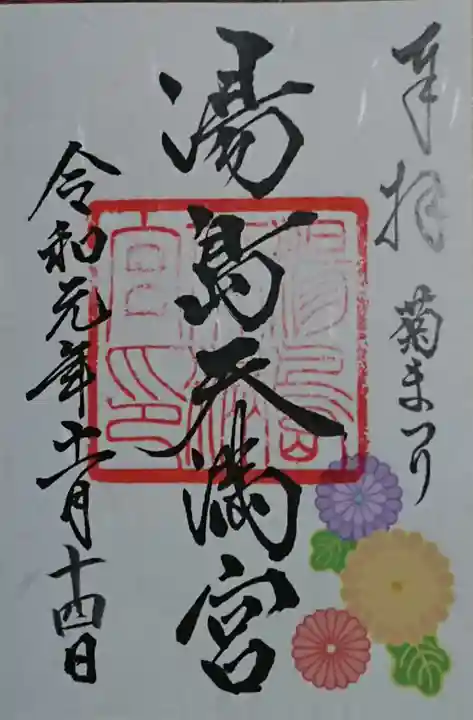 奉拝 菊まつり
湯島天満宮
令和元年十一月十四日